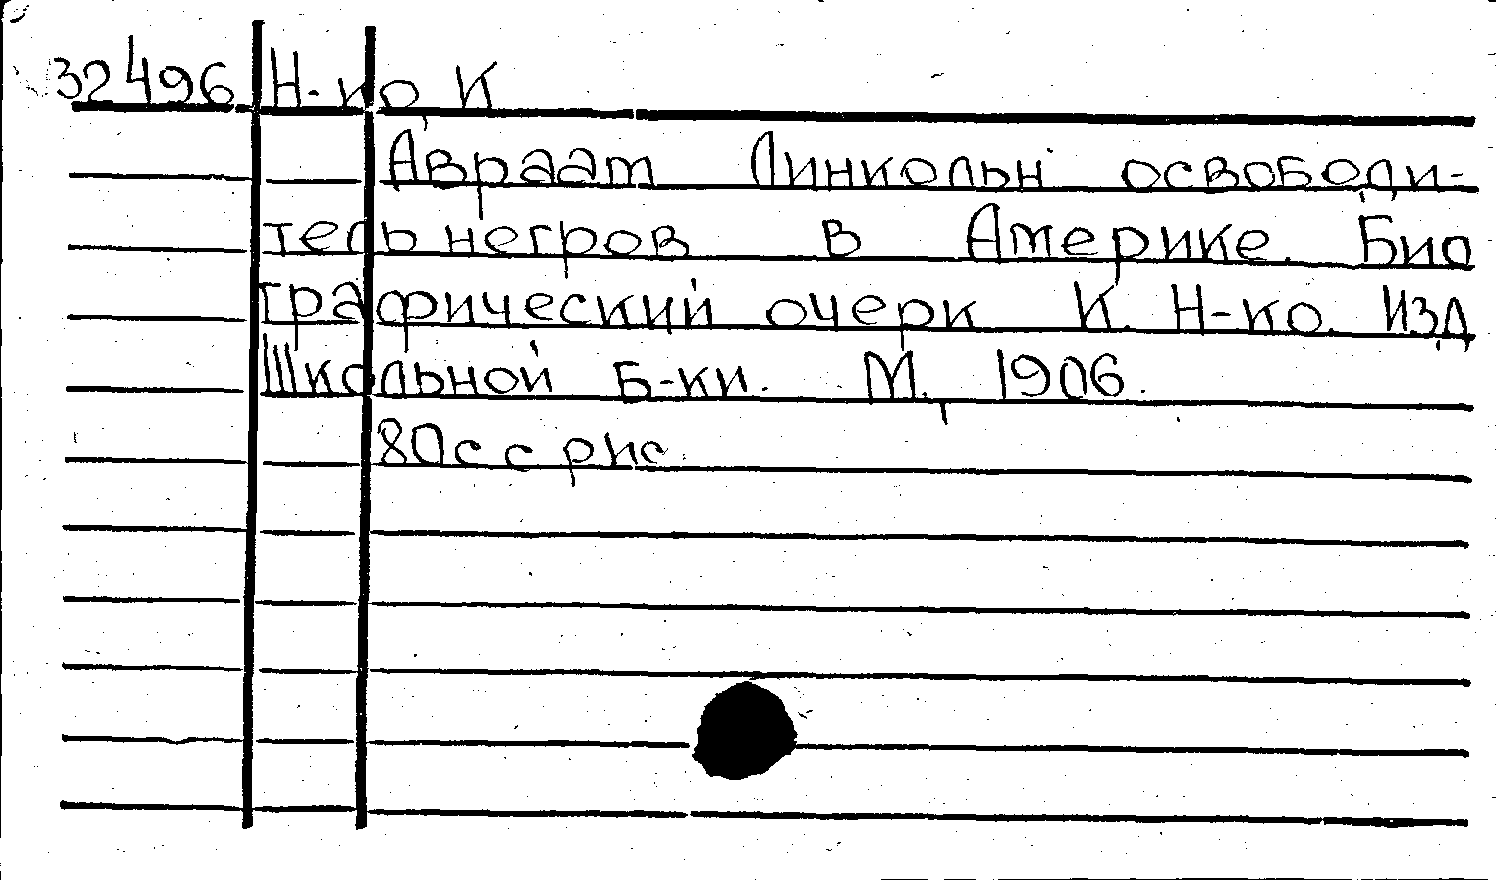 32496 Н-ко К
Авраам Линкольн освободи-
тель негров в Америке. Био
графический очерк К. Н-ко. Изд
Школьной Б-ки. М., 1906.
80с с рис.